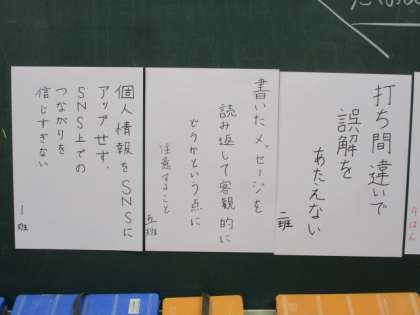 打ち間違いで
誤解を
あたえない
二班
書いたメッセージを
読み返して客観的に
どうかという点に
注意すること
五班
個人情報をSNSに
アップせず、
SNS上での
つながりを
信じすぎない
1班